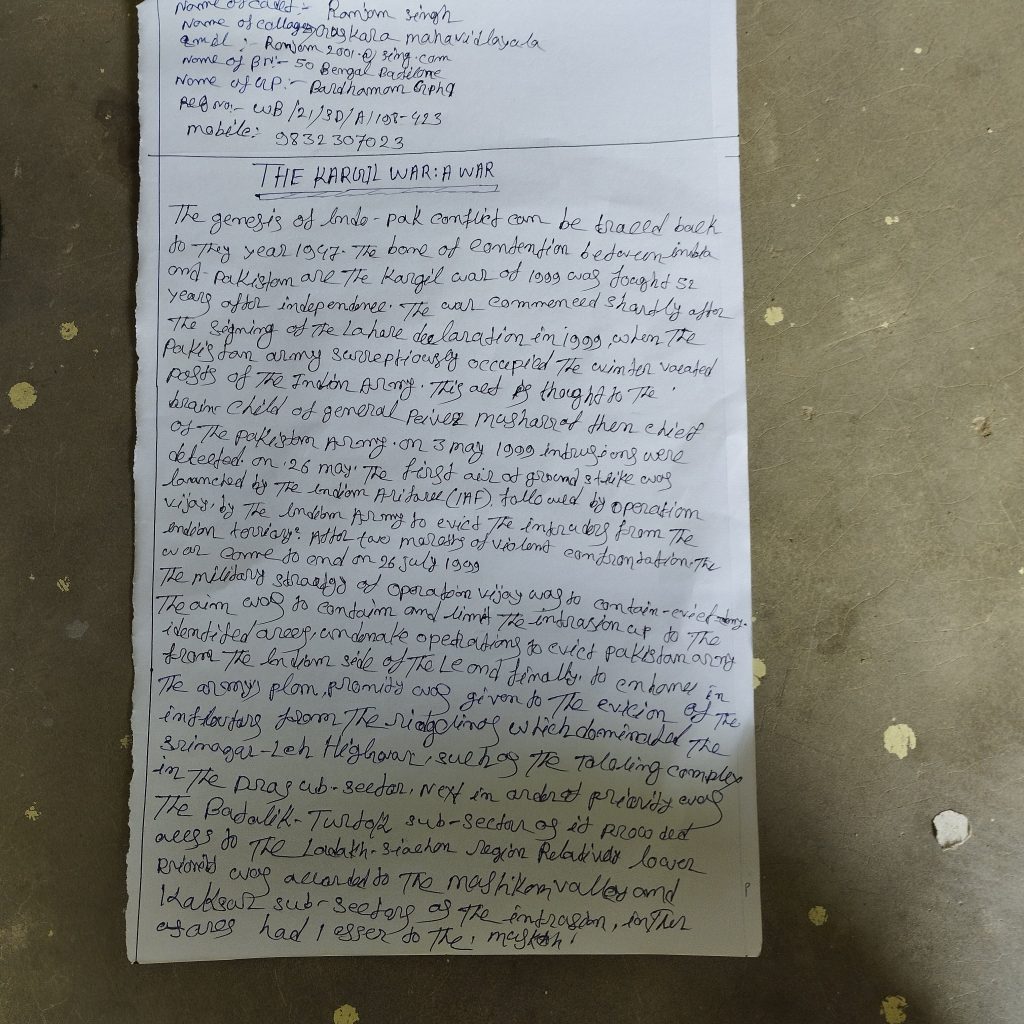 Name of Cadet:- Ranjam singh
Name of collage mahavidlayala
emil :- Ranjam 2001 @ sing.com
Name of BN:- 50 Bengal Batilone
Name of GP:- Bardhamam Grphq
Reg no:- WB/21/SD/A/108-423
mobile: 9832307023
THE KARGIL WAR: A WAR
The genesis of Indo-pak conflict can be traced back
to They year 1947. The bone of contention between
and Pakistan are The Kargil war of 1999 was fought 52
years after independence. The war commenced shartly after
The signing of The Lahare declaration in 1999, when The
Pakistan army surreptiously occupied The winter vacated
posts of The Indian Army. This act is thought to The
brain child of general Pervez masharrof then chief
of The pakistan Army. on 3 may 1999 intrusions were
detected. on 26 may. The first air at ground strike was
launched by The Indian (IAF), followed by operation
vijay. by The Indian Army to evict The intruders from The
indian After two of violent confrontation. The
war came to end on 26 July 1999
The military of operation vijay was to contain-evict-
The aim was to contaim and limit The intrusion up to The
identifed arees, undenake operations to evict pakistan army
from The Indian side of The Lc and finally, to enhance in
The army's plan, was given to The eviction of The
from The which dominated The
Srinagar-Leh Highwar, such as The Tololing complex
in The Dras ub-sector. Next in order of priority was
The Batalik-Turtok sub-sector as it provided
acess to The Ladakh-siachan region Relatively lower
was accorded to The mashkoh valley and
Kaksar sub-sectors as The intrusion, in Ther
had lesser to The